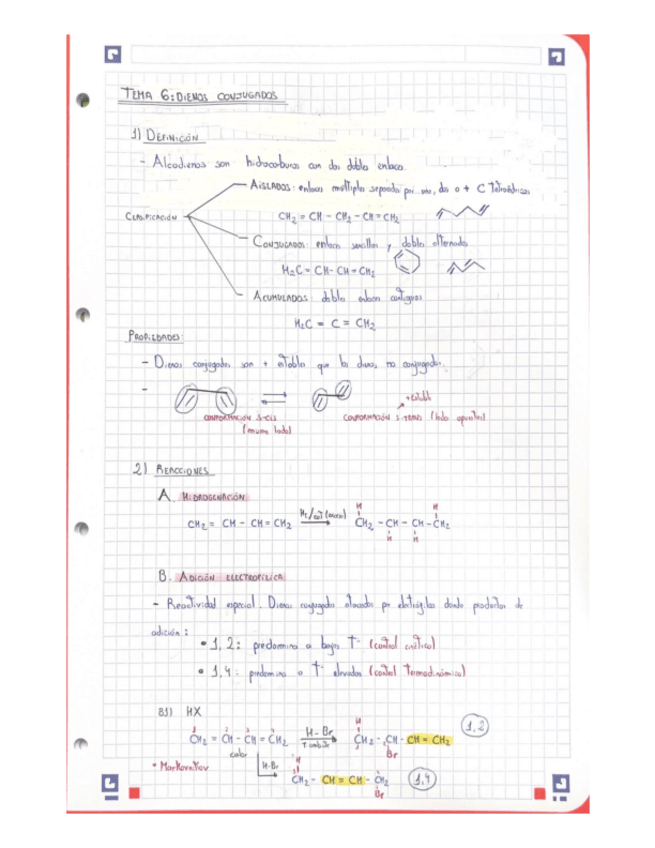 TEMA 6: DIENOS CONJUGADOS
1) DEFINICIÓN
- Alcadienos son hidrocarburos con dos dobles enlaces.
AISLADOS: enlaces múltiples separados por uno, dos o + C Tetraédricos
CLASIFICACIÓN
CH₂ = CH - CH₂ - CH = CH₂
CONJUGADOS: enlaces sencillos y dobles alternados
H₂C = CH - CH = CH₂
ACUMULADOS: dobles enlaces contiguos
H₂C = C = CH₂
PROPIEDADES:
- Dienos conjugados son + estables que los dienos no conjugados.
-
+ estable
CONFORMACIÓN S-CIS CONFORMACIÓN S-TRANS (lados opuestos)
(mismo lado)
2) REACCIONES
A. HIDROGENACIÓN
H H
CH₂ = CH - CH = CH₂ H₂/cat (exceso) CH₂ - CH - CH - CH₂
H H
B. ADICIÓN ELECTROFÍLICA
- Reactividad especial. Dienos conjugados atacados por electrófilos dando productos de
adición:
• 1, 2: predomina a bajas Tª (control cinético)
• 1, 4: predomina a Tª elevadas (control Termodinámico)
B1) HX
H
1 2 3 4
CH₂ = CH - CH = CH₂ H-Br CH₂ - CH - CH = CH₂ 1,2
calor Br
• Markovnikov H-Br H
CH₂ - CH = CH - CH₂ 1,4
Br